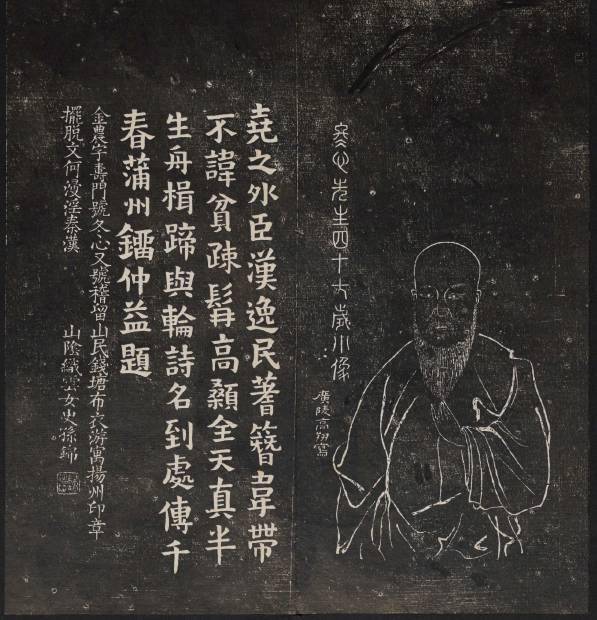 冬心先生四十七歲小像
廣陵高翔寫
堯之外臣漢逸民蓍簪韋帶
不諱貧疎髯高顙全天真半
生舟楫蹄與輪詩名到處傳千
春蒲州鐂仲益題
金農字壽門號冬心又號稽留山民錢塘布衣游寓揚州印章
擺脫文何浸淫秦漢 山陰織雲女史孫錦